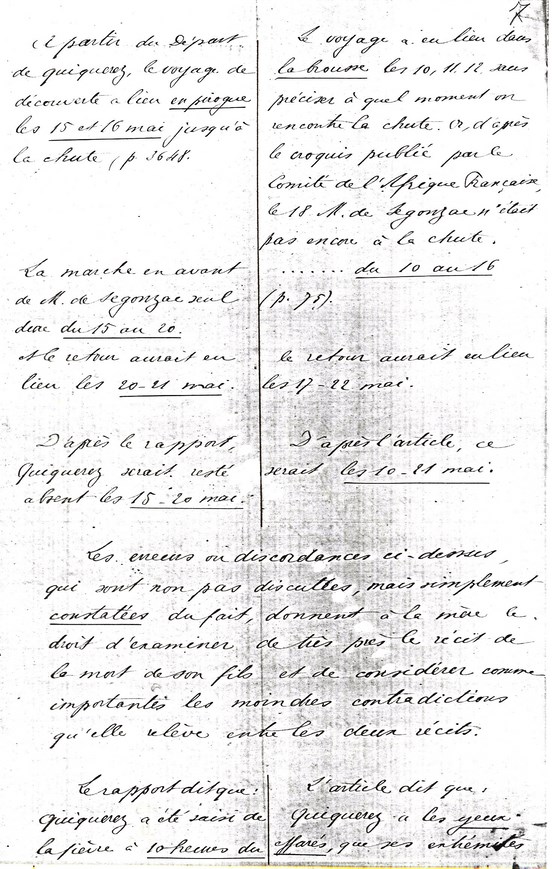 7
à partir du Départ
de Quiquerez, le voyage de
découverte a lieu en pirogue
les 15 et 16 mai jusqu'à
la chute (p. 3648.
La marche en avant
de M. de Segonzac seul
dure du 15 au 20.
et le retour aurait eu
lieu les 20-21 mai.
D'après le rapport,
Quiquerez serait resté
absent les 15-20 mai.
Le voyage a eu lieu dans
la brousse les 10, 11, 12 sans
préciser à quel moment on
rencontre la chute. Or, d'après
le croquis publié par le
Comité de l'Afrique Française,
le 18 M. de Segonzac n'était
pas encore à la chute.
....... du 10 au 16
(p. 75).
le retour aurait eu lieu
les 17-22 mai.
D'après l'article, ce
serait les 10-21 mai.
Les erreurs ou discordances ci-dessus,
qui sont non pas discutées, mais simplement
constatées du fait, donnent à la mère le
droit d'examiner de très près le récit de
la mort de son fils et de considérer comme
importantes les moindres contradictions
qu'elle relève entre les deux récits.
Le rapport dit que:
Quiquerez a été saisi de
la fièvre à 10 heures du
L'article dit que:
Quiquerez a les yeux
effarés, que ses extrémités